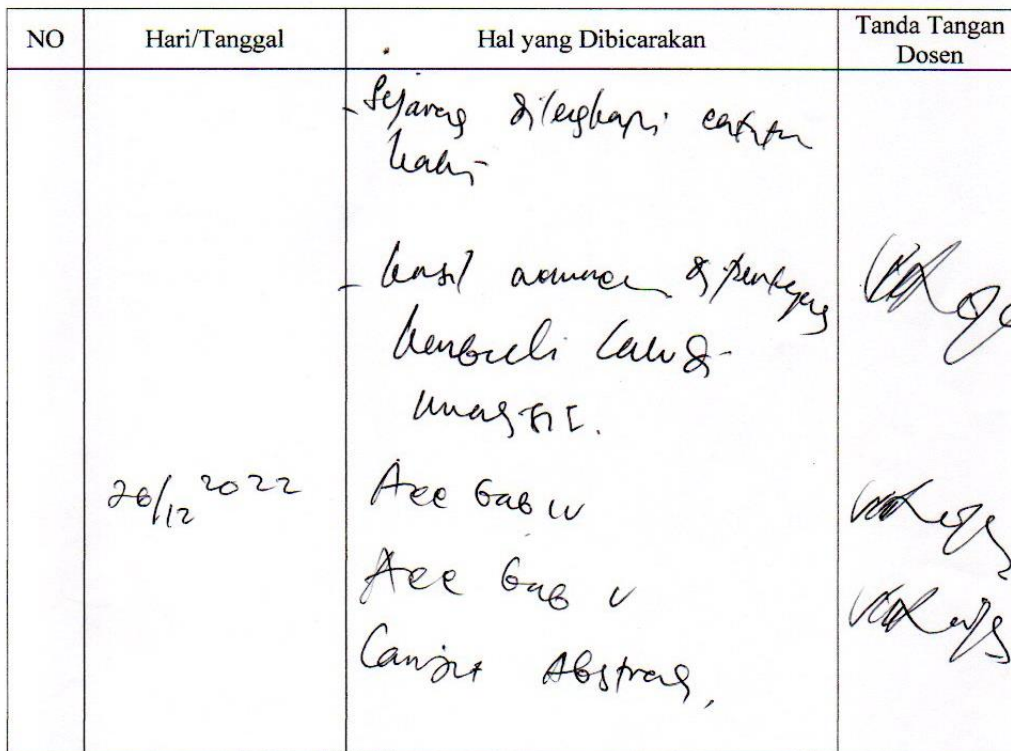 NO Hari/Tanggal Hal yang Dibicarakan Tanda Tangan
Dosen
- Sejarag dilengkapi catatan
kaki
- hasil di
kembali lalu di
26/12 2022 Acc Bab IV
Acc Bab V
Lanjut Abstrak,